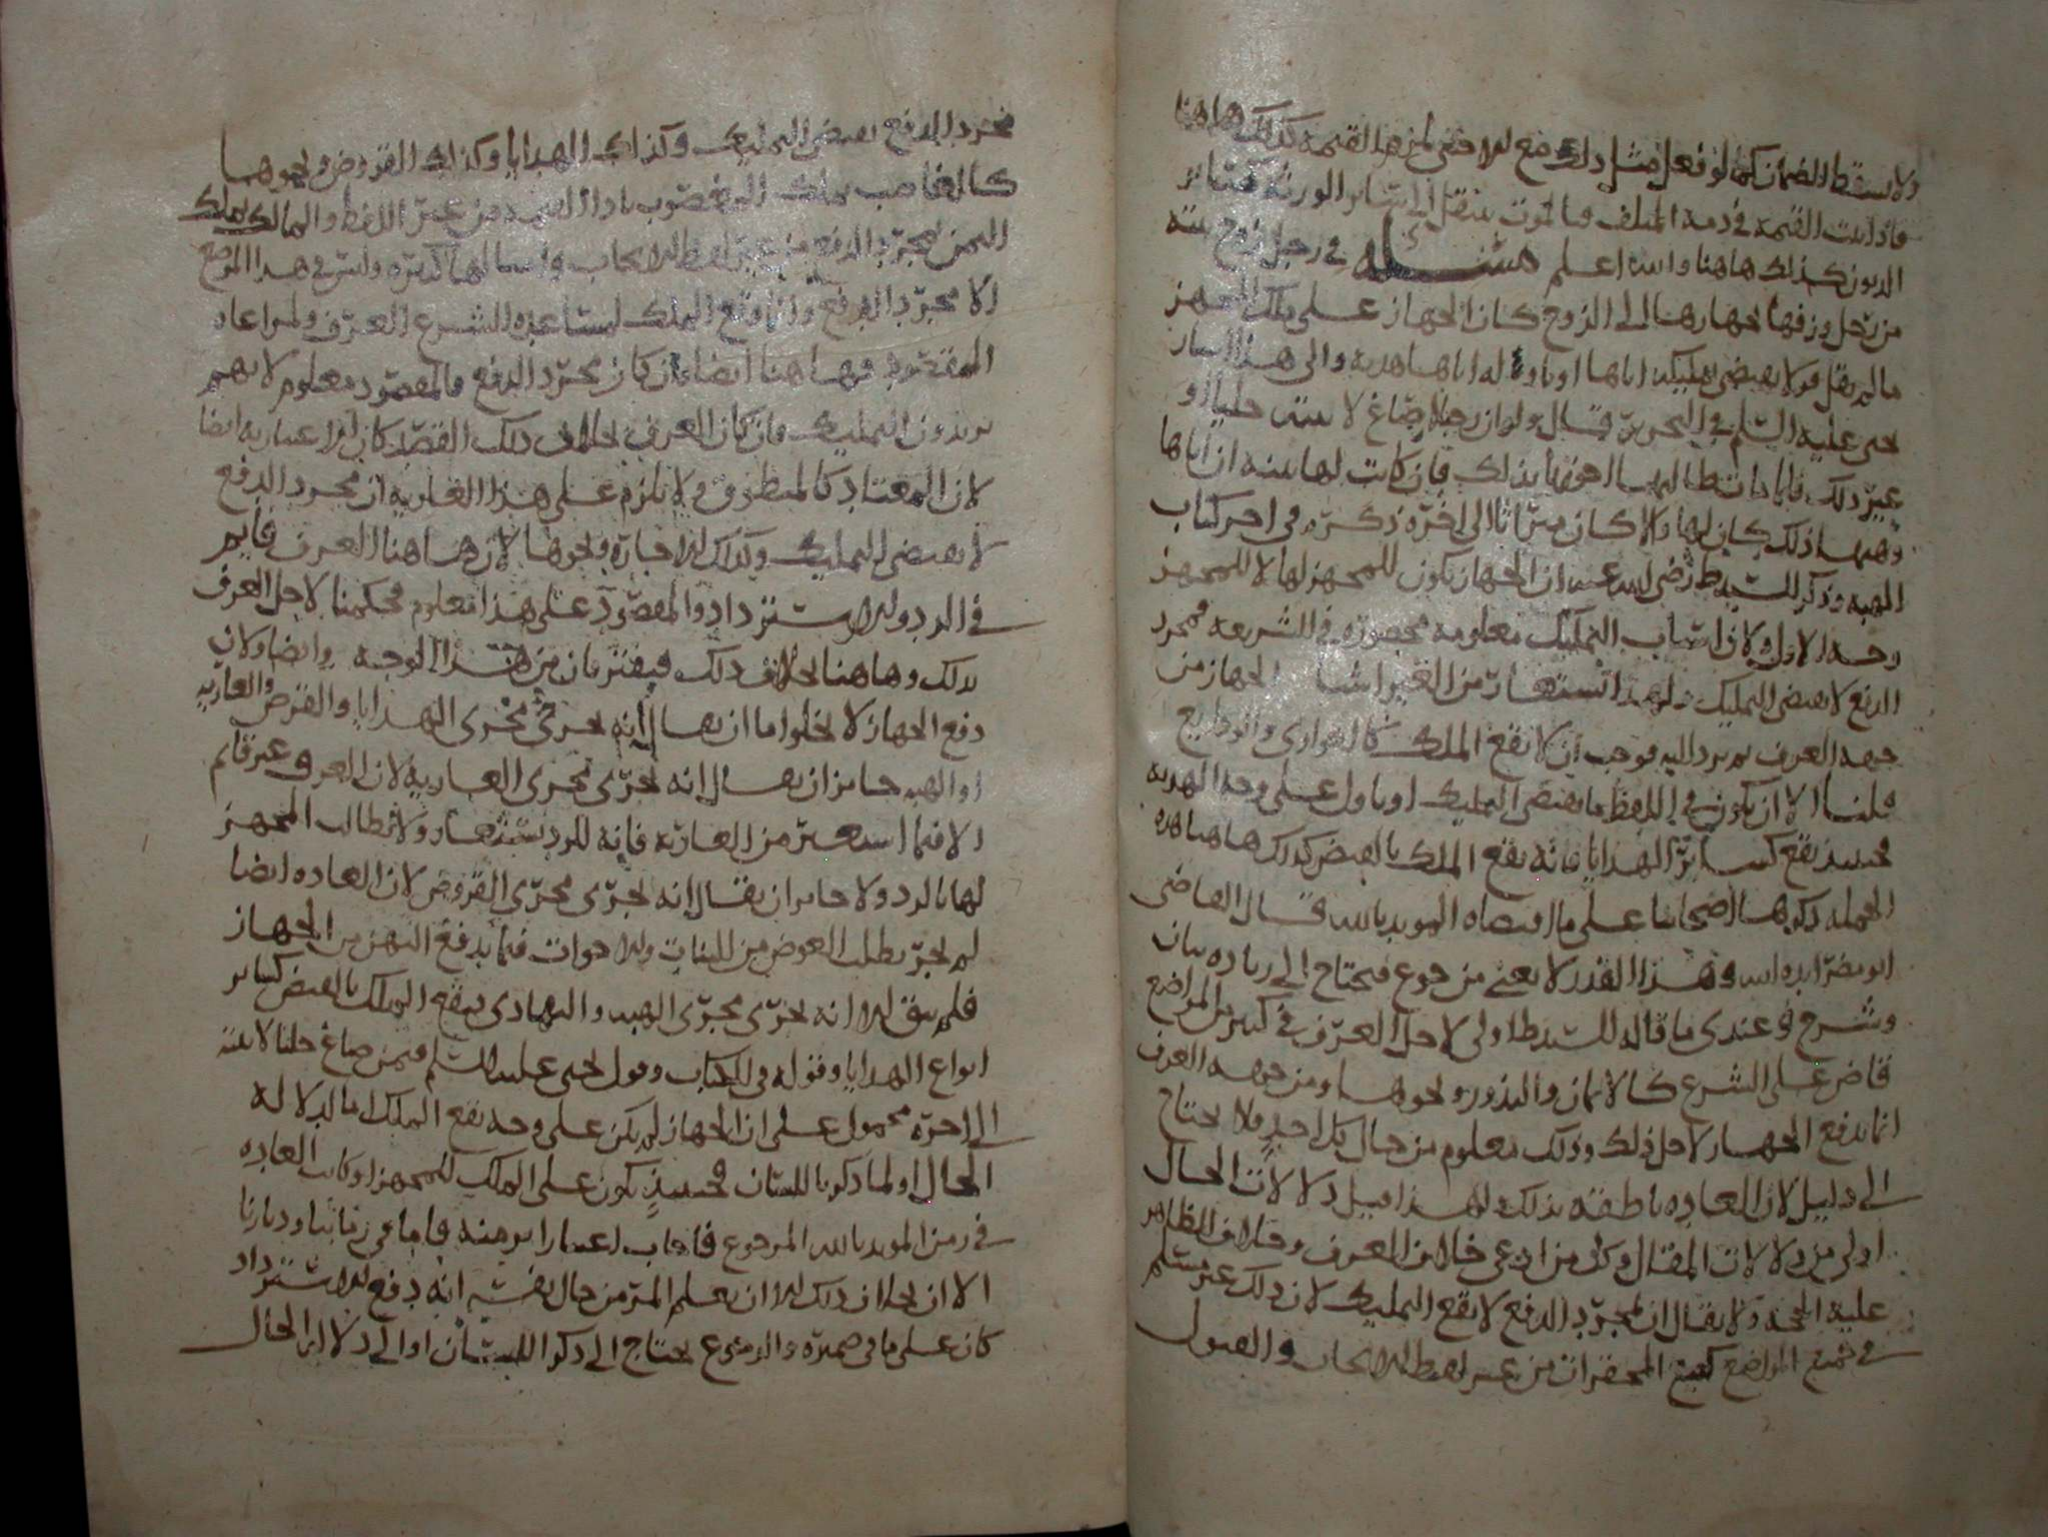 ولا يسقط الضمان كما لو فعل مثل ذلك مع لم يزمه القيمة كذلك هاهنا
فاذا القيمة في ذمة المتلف فبالموت ينتقل الى سائر الورثة كسائر
الديون كذلك هاهنا والله اعلم مسئله في رجل زوج بنته
من رجل وزفها بجهازها الى الزوج كان الجهاز على ملك المجهز
ما لم يقل قولا يقتضي تمليكه اياها او ناوله اياها هدية والى هذا اشار
يحيى عليه السلم في التحرير فقال ولو ان رجلا صاغ لابنته حليا او
غير ذلك فاذا ماتت طالب الورثة بذلك فان كانت لها بينة ان اباها
وهبها ذلك كان لها والا كان ميراثا الى اخره ذكره في اخر كتاب
الهبة وذكر السيد ط رضي الله عنه ان الجهاز يكون للمجهز لها لا للمجهز
وجه الاول ولان اسباب التمليك معلومة محصورة في الشريعة فمجرد
الدفع لا يقتضي التمليك ولهذا تستعار من الغير اشيا الجهاز من
جهة العرف ثم يرد اليه فوجب ان لا يقع الملك كالعواري والودايع
قلنا الا ان يكون في اللفظ ما يقتضي التمليك او ناول على وجه الهدية
فحينئذ يقع كسائر الهدايا فانه يقع الملك بالقبض كذلك هاهنا هذه
الجملة ذكرها اصحابنا على ما اقتضاه المويد بالله قال القاضي
ابو مضر ايده الله وهذا القدر لا يغني من جوع فيحتاج الى زيادة بيان
وشرح وعندي ما قاله السيد ط اولى لاجل العرف في كثير من المواضع
قاض على الشرع كالايمان والنذور ونحوها ومن جهة العرف
انما يدفع الجهاز لاجل ذلك وذلك معلوم من حال كل احد ولا يحتاج
الى دليل لان العادة ناطقة بذلك ولهذا قيل دلالات الحال
اولى من دلالات المقال وكل من ادعى خلاف العرف وخلاف الظاهر
عليه الحجة ولا يقال ان بمجرد الدفع لا يقع التمليك لان ذلك غير مسلم
في جميع المواضع كبيع المحقرات من غير لفظ الايجاب والقبول
فمجرد الدفع يقتضي التمليك وكذلك الهدايا وكذلك القروض ونحوها
كالغاصب يملك المغصوب باداء القيمة من غير اللفظ والمالك يملك
الثمن بمجرد الدفع من غير لفظ الايجاب وامثالها كثيرة وليس في هذا الموضع
الا مجرد الدفع وانما وقع الملك لمساعدة الشرع العرف ولمراعاة
المقصود فهاهنا ايضا وان كان مجرد الدفع فالمقصود معلوم لانهم
يريدون التمليك وان كان العرف بخلاف ذلك القصد كان الاعتبار به ايضا
لان المعتاد كالمنطوق ولا يلزم على هذا العارية ان مجرد الدفع
لا يقتضي التمليك وكذلك الاجارة ونحوها لان هاهنا العرف قايم
في الرد والاسترداد والمقصود على هذا معلوم فحكمنا لاجل العرف
بذلك وهاهنا بخلاف ذلك فيفترقان من هذا الوجه وايضا ولان
دفع الجهاز لا يخلوا اما ان يقال انه يجري مجرى الهدايا والقرض والعارية
او الهبة جايز ان يقال انه يجري مجرى العارية لان العرف غير قائم
الا فيما استعير من العارية فانه للرد يستعار ولا يطالب المجهز
لها بالرد ولا جايز ان يقال انه يجري مجرى القروض لان العادة ايضا
لم تجر بطلب العوض من البنات والاخوات فيما يدفع اليهن من الجهاز
فلم يبق الا انه يجري مجرى الهبة والتهادي فيقع الملك بالقبض كسائر
انواع الهدايا وقوله في الكتاب وقول يحيى عليه السلم فيمن صاغ حليا لابنته
الى اخره محمول على ان الجهاز لم يكن على وجه يقع الملك بالدلالة
الحال او لما ذكر باللسان فحينئذ يكون على الملك للمجهز او كانت العادة
في زمن المويد بالله المرجوع فاجاب اعتبارا بزمنه فاما في زماننا وديارنا
الان بخلاف ذلك الا ان يعلم المرء من حال نفسه انه دفع للاسترداد
كان على ما في ضميره والرجوع يحتاج الى ذكر اللسان او الى دلالة الحال